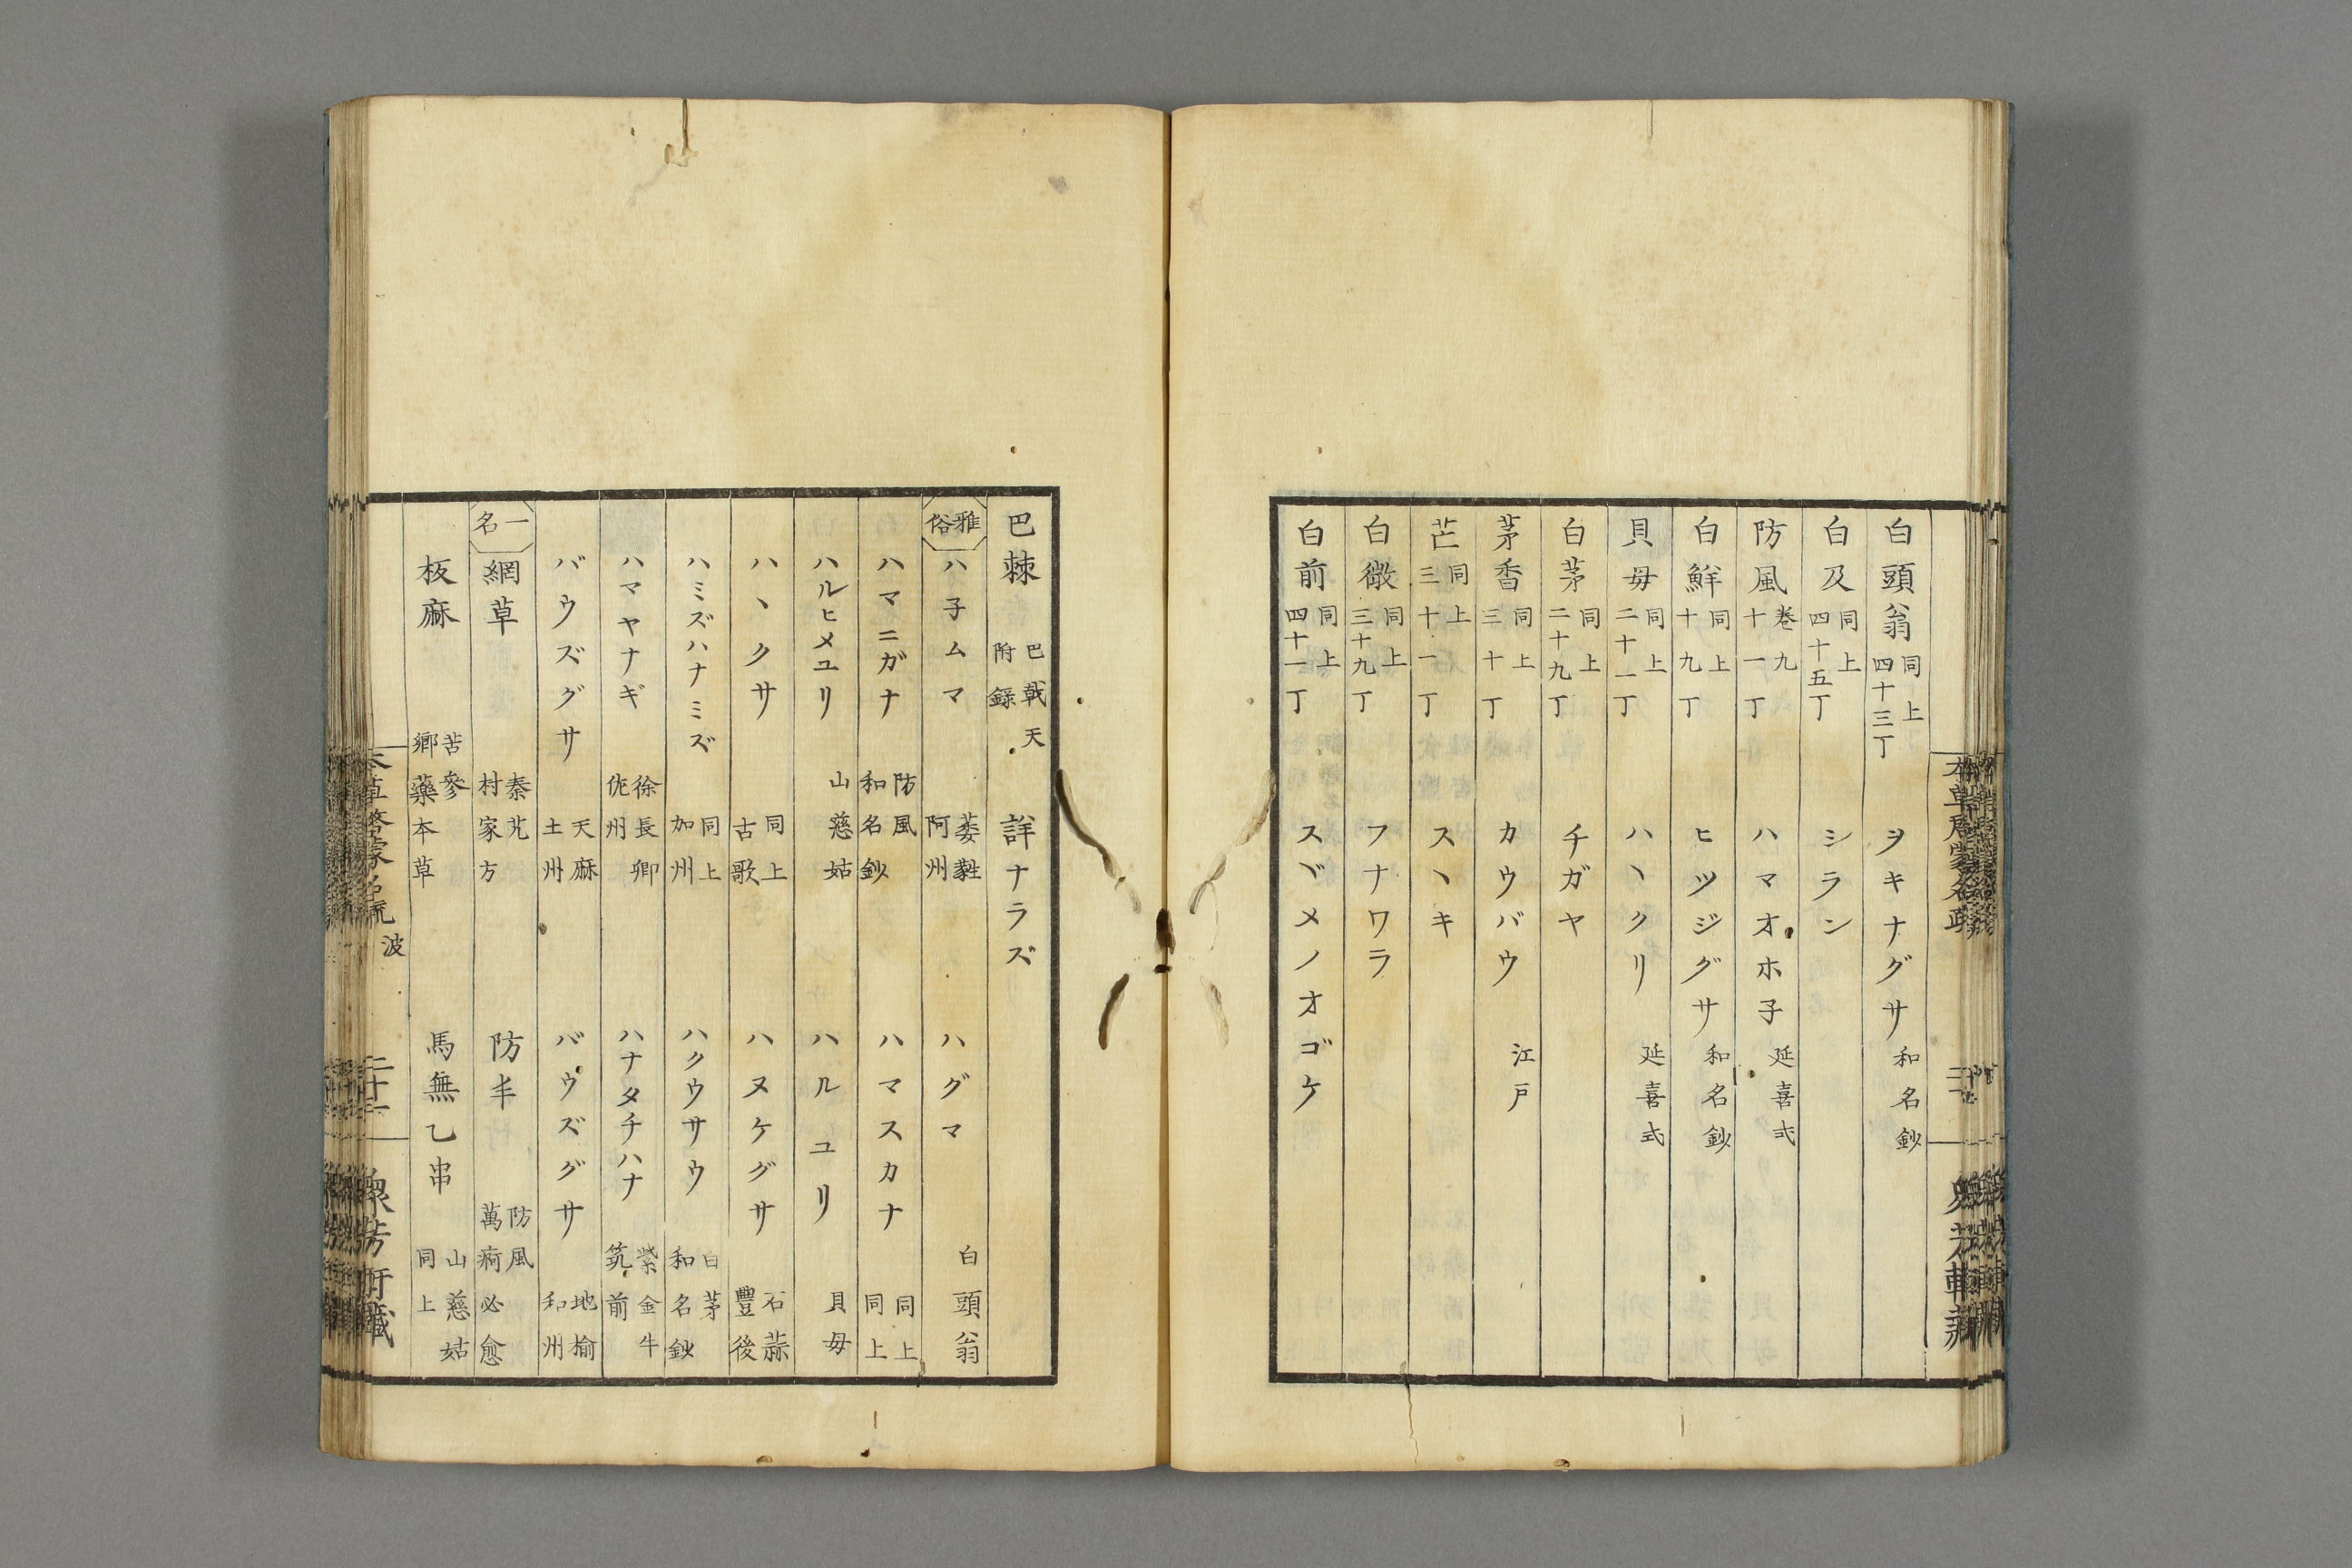 白頭翁 同上 四十三丁 ヲキナグサ 和名鈔
白及 同上 四十五丁 シラン
防風 巻九 十一丁 ハマオホ子 延喜式
白鮮 同上 十九丁 ヒツジグサ 和名鈔
貝母 同上 二十一丁 ハヽクリ 延喜式
白茅 同上 二十九丁 チガヤ
茅香 同上 三十丁 カウバウ 江戸
芒 同上 三十一丁 スヽキ
白薇 同上 三十九丁 フナワラ
白前 同上 四十一丁 スヾメノオゴケ
巴棘 巴戟天附録 詳ナラズ
雅俗 ハ子ムマ 萎蕤 阿州 ハグマ 白頭翁
ハマニガナ 防風 和名鈔 ハマスカナ 同上 同上
ハルヒメユリ 山慈姑 ハルユリ 貝母
ハヽクサ 同上 古歌 ハヌケグサ 石蒜 豐後
ハミズハナミズ 同上 加州 ハクウサウ 白茅 和名鈔
ハマヤナギ 徐長卿 佐州 ハナタチハナ 紫金牛 筑前
バウズグサ 天麻 土州 バウズグサ 地榆 和州
一名 網草 秦艽 村家方 防半 防風 萬痾必愈
板麻 苦參 郷藥本草 馬無乙串 山慈姑 同上
本草啓蒙名疏 波 二十一 衆芳軒藏